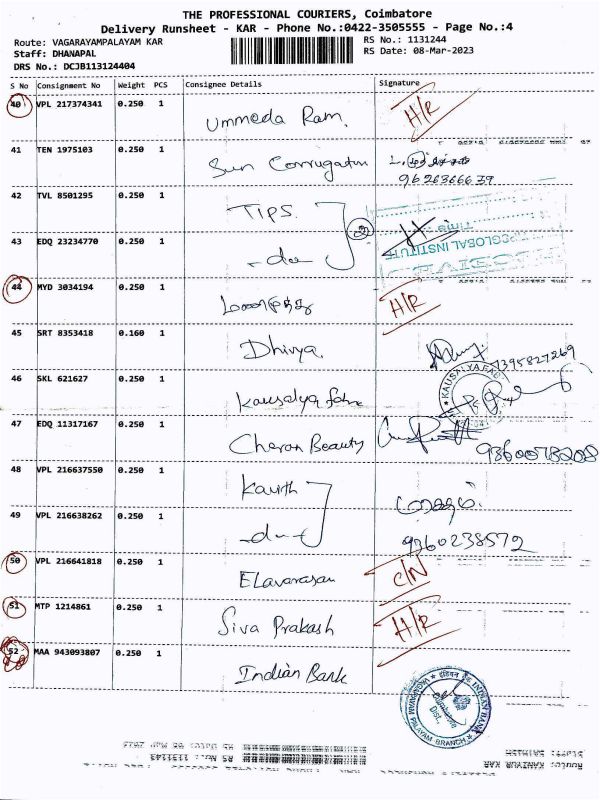 THE PROFESSIONAL COURIERS, Coimbatore
Delivery Runsheet - KAR - Phone No.:0422-3505555 - Page No.:4
Route: VAGARAYAMPALAYAM KAR
RS No.: 1131244
Staff: DHANAPAL
RS Date: 08-Mar-2023
DRS No.: DCJB113124404
S No Consignment No Weight PCS Consignee Details Signature
40 VPL 217374341 0.250 1 Ummeda Ram. H/R
41 TEN 1975103 0.250 1 Sun Corrugation
9626366639
42 TVL 8501295 0.250 1 TIPS 2
43 EDQ 23234770 0.250 1 -do-
44 MYD 3034194 0.250 1 H/R
45 SRT 8353418 0.160 1 Dhivya. 7395827269
46 SKL 621627 0.250 1 Kausalya fab KAUSALYA FAB
47 EDQ 11317167 0.250 1 Cheran Beauty 9360073208
48 VPL 216637550 0.250 1 Kavith
49 VPL 216638262 0.250 1 -do- 9360238572
50 VPL 216641818 0.250 1 Elavarasan C/N
51 MTP 1214861 0.250 1 Siva Prakash H/R
52 MAA 943093807 0.250 1 Indian Bank
INDIAN BANK
PALAYAM BRANCH